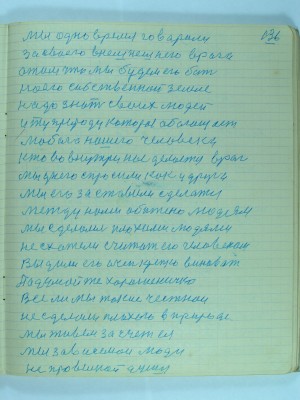 136
мы одно время говорили
за своего внешнего врага
о том что мы будем его бить
на его собственной земле
надо знать своих людей
и ту природу которая обогащает
любого нашего человека
кто во внутри нас делается враг
мы у него просили как у друга
мы его заставили сделать
между нами обижено людям
мы сделали плохими людями
не схотели считать его человеком
Вы дили его виноват
Подумайте хорошенечко
Все ли мы такие честные
не сделали плохого в природе
мы живем за счет ея
мы зависимые люди
не проверенной